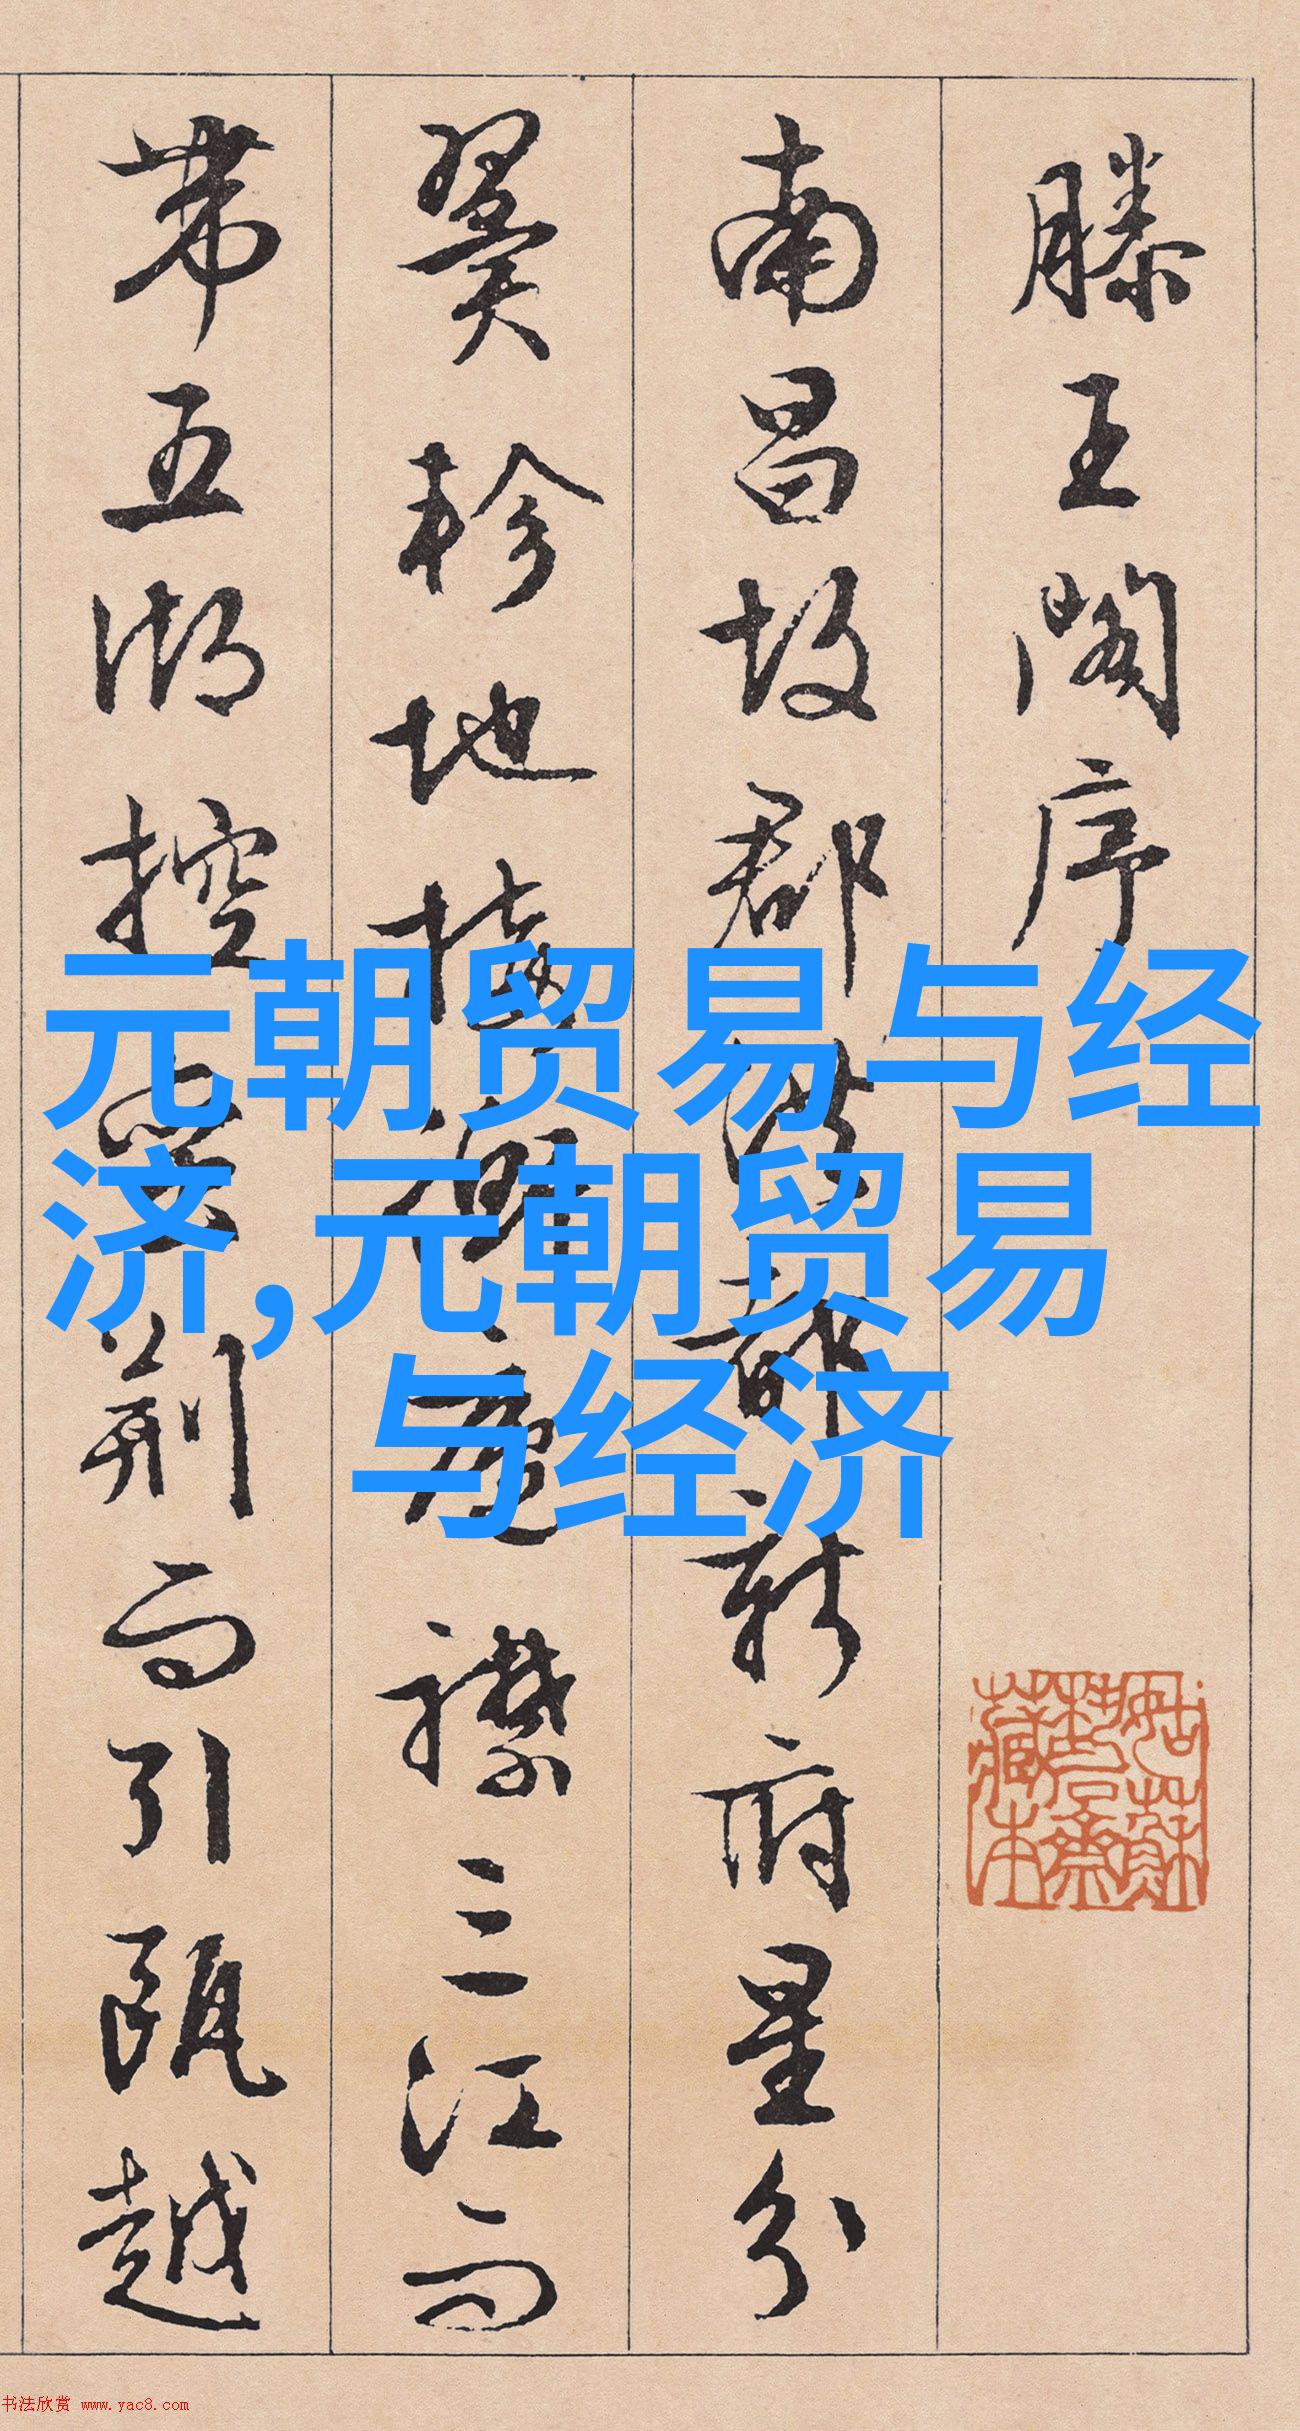 滕王阁序
南昌故郡洪都新府星分
翼轸地接衡庐襟三江而
带五湖控蛮荆而引瓯越
元朝贸易与经
济,元朝贸易
与经济
姑苏
藏本
书法欣赏 www.yac8.com